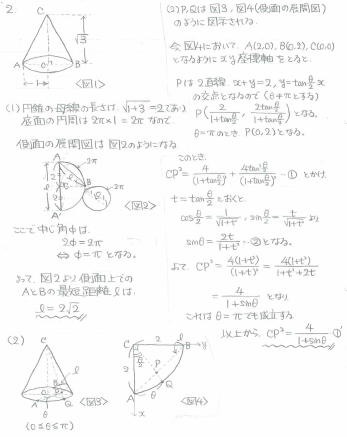 2.
C
√3
A O B
1
<図1>
(1) 円錐の母線の長さは √(1+3) = 2 であり
底面の円周は 2π×1 = 2π なので
側面の展開図は図2のようになる
A
2π
C
B
A'
2π
<図2>
ここで中心角φは
2φ = 2π
⇔ φ = π となる。
よって、図2より側面上での
AとBの最短距離lは、
l = 2√2
(2)
C
l
A O B
Q
θ
(0≦θ≦π)
<図3>
C 2 B y
2
P
l
A
Q
θ
x
<図4>
(2) P, Qは図3, 図4(側面の展開図)
のように図示される。
今図4において、A(2,0), B(0,2), C(0,0)
となるように xy座標軸をとると、
Pは2直線 x+y=2, y=tan θ/2 x
の交点となるので (θ≠πとする)
P(2/(1+tan θ/2), 2tan θ/2/(1+tan θ/2)) となる。
θ=πのとき、P(0,2)となる。
このとき、
CP² = 4/(1+tan θ/2)² + 4tan² θ/2/(1+tan θ/2)² …① とかけ、
t = tan θ/2 とおくと、
cos θ/2 = 1/√(1+t²), sin θ/2 = t/√(1+t²) より
sinθ = 2t/(1+t²) …② となる。
よって、CP² = 4(1+t²)/(1+t)² = 4(1+t²)/(1+t²+2t)
= 4/(1+sinθ) となり
これは θ=π でも成立する
以上から、CP² = 4/(1+sinθ) ①'